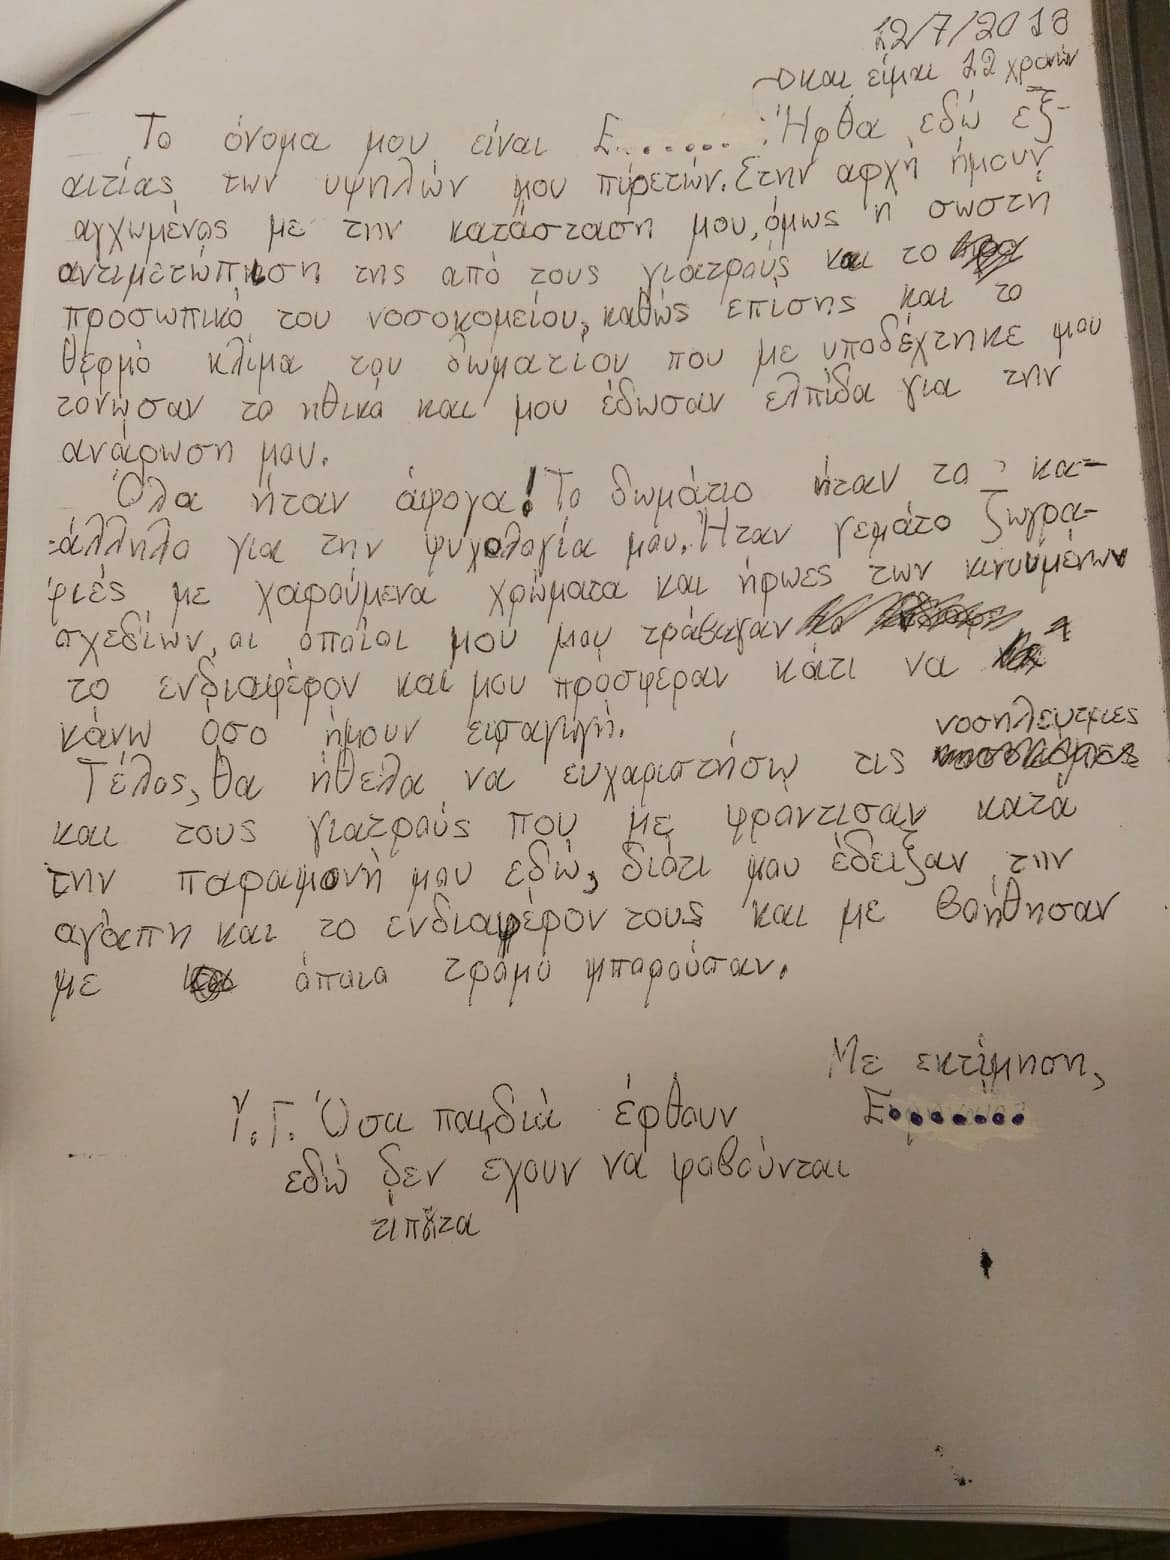 12/7/2018
και είμαι 12 χρονών
Το όνομα μου είναι Ε....... . Ήρθα εδώ εξ-
αιτίας των υψηλών μου πύρετών. Στην αρχή ήμουν
αγχωμένος με την κατάσταση μου, όμως η σωστή
αντιμετώπιση της από τους γιατρούς και το
προσωπικό του νοσοκομείου, καθώς επίσης και το
θερμό κλίμα του δωματίου που με υποδέχτηκε μου
τόνωσαν το ηθικό και μου έδωσαν ελπίδα για την
ανάρωση μου.
Όλα ήταν άψογα! Το δωμάτιο ήταν το κα-
άλληλο για την ψυχολογία μου. Ήταν γεμάτο ζωγρα-
φιές με χαρούμενα χρώματα και ήρωες των κινούμενων
σχεδίων, οι οποίοι μου μου τράβαγαν
το ενδιαφέρον και μου πρόσφεραν κάτι να
κάνω όσο ήμουν εισαγωγή.
νοσηλεύτριες
Τέλος, θα ήθελα να ευχαριστήσω τις
και τους γιατρούς που με φροντισαν κατά
την παραμονή μου εδώ, διότι μου έδειξαν την
αγάπη και το ενδιαφέρον τους και με βοήθησαν
με όποιο τρόπο μπορούσαν.
Με εκτίμηση,
Ε.......
Υ.Γ. Όσα παιδιά έρθουν
εδώ δεν εχουν να φοβούνται
τίποτα